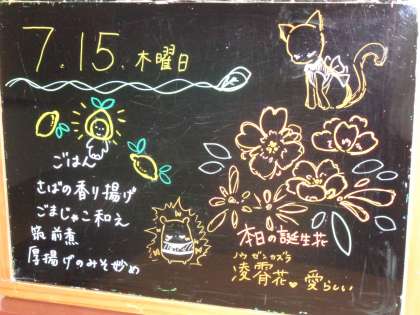 7.15.木曜日
ごはん
さばの香り揚げ
ごまじゃこ和え
筑前煮
厚揚げのみそ炒め
本日の誕生花
ノウゼンカズラ
凌霄花♥愛らしい